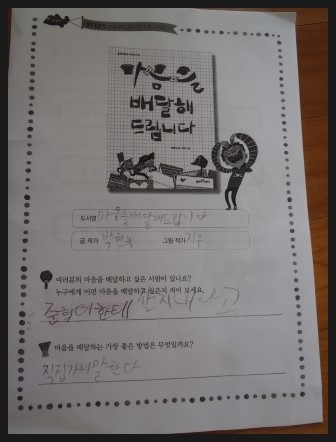 마음을
배달해
드립니다
도서명 마음을배달해드립니다
글 작가 박현숙 그림 작가 지우
여러분의 마음을 배달하고 싶은 사람이 있나요?
누구에게 어떤 마음을 배달하고 싶은지 적어 보세요.
한테 잘지내라고
마음을 배달하는 가장 좋은 방법은 무엇일까요?
직접가서말한다